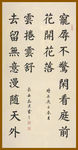 寵辱不驚閑看庭前
花開花落
去留無意漫隨天外
雲捲雲舒